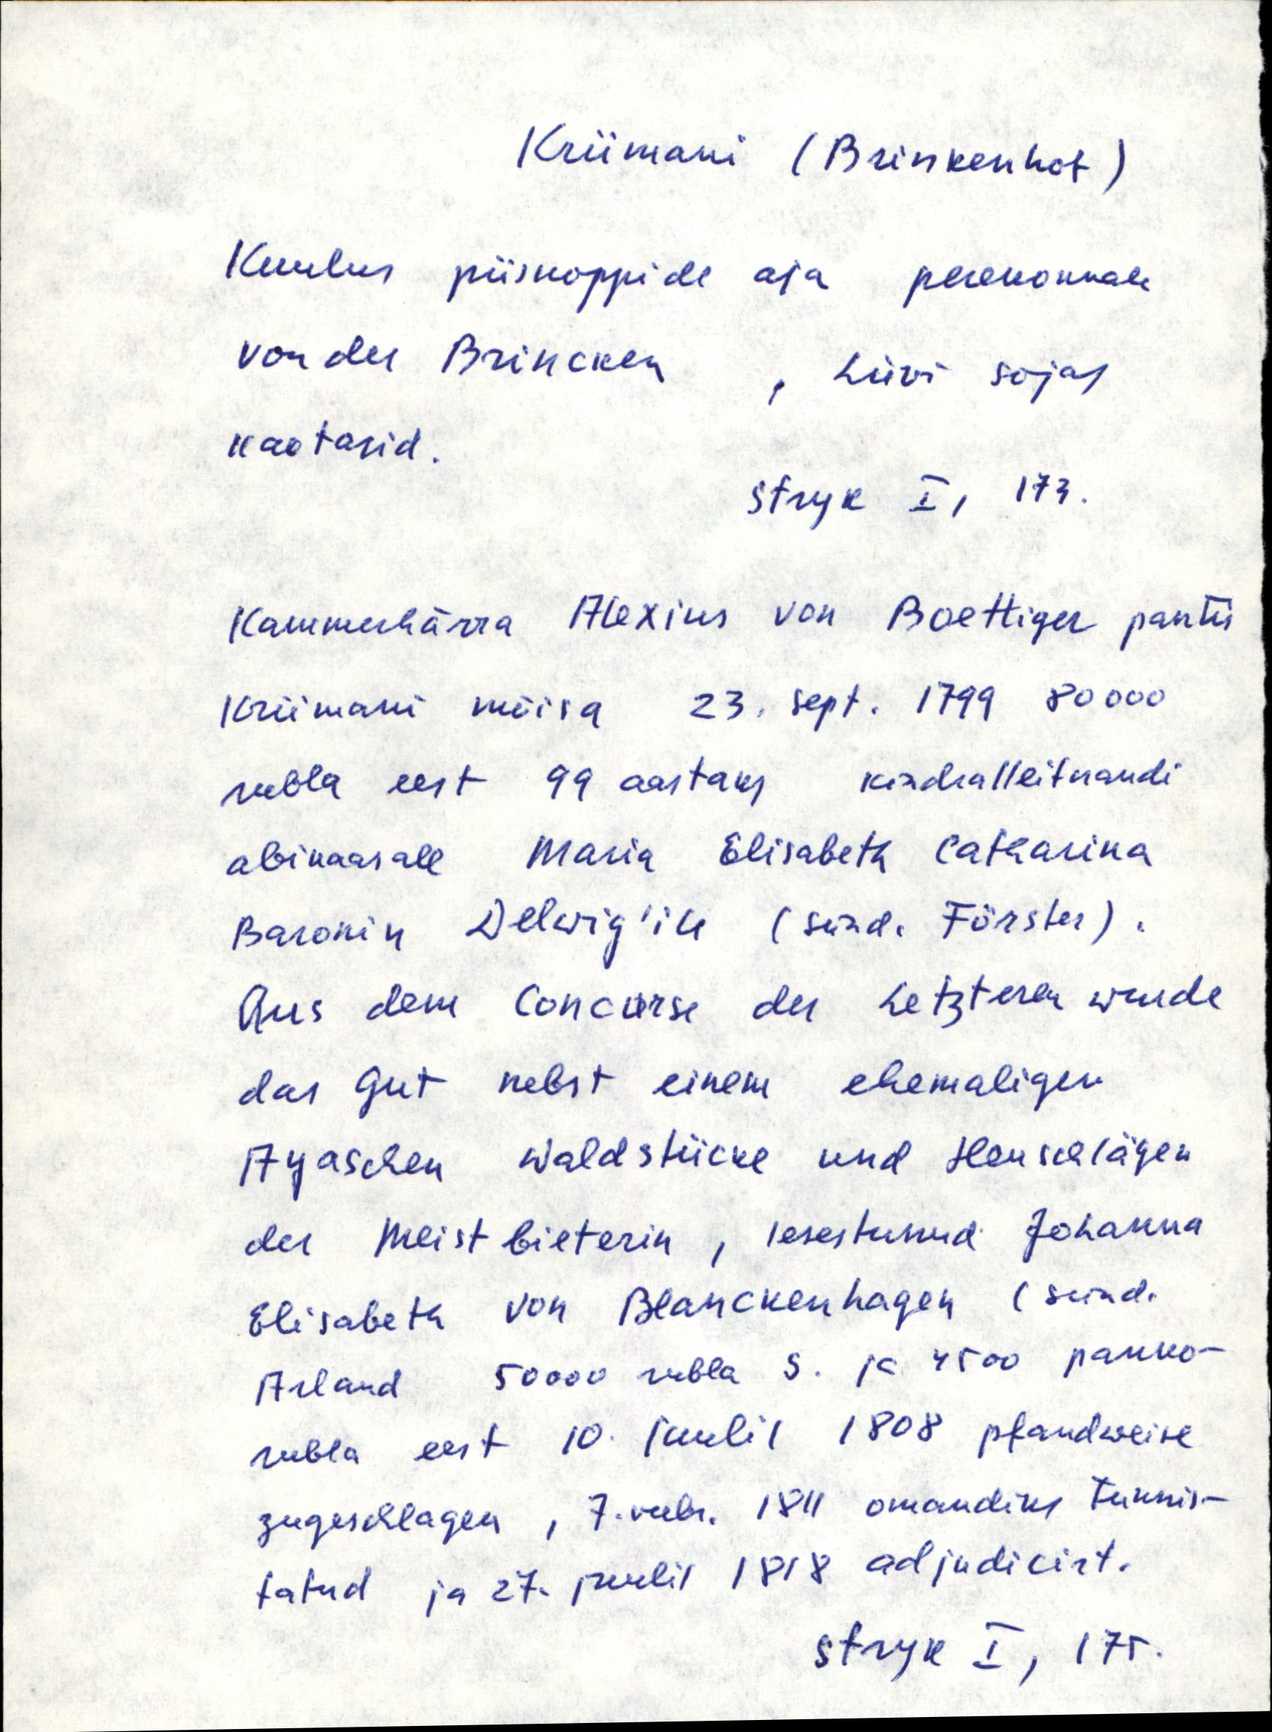 Kriimani (Brinkenhof)
Kuulus piiskoppide aja perekonnale
von der Brincken , Liivi sõjas
kaotasid.
Stryk I, 173.
Kammerhärra Alexius von Boettiger pantis
Kriimani mõisa 23. sept. 1799 80000
rubla eest 99 aastaks kindralleitnandi
abikaasale Maria Elisabeth Catharina
Baronin Delwig'ile (sünd. Förster).
Aus dem Concurse der Letzteren wurde
das Gut nebst einem ehemaligen
Ayaschen Waldstücke und Heuschlägen
der Meistbieterin, lesestunud Johanna
Elisabeth von Blanckenhagen (sünd.
Arland 50000 rubla S. ja 4500 panko-
rubla eest 10. juulil 1808 pfandweise
zugeschlagen, 7. veebr. 1811 omandiks tunnis-
tatud ja 27. juulil 1818 adjudicirt.
Stryk I, 175.